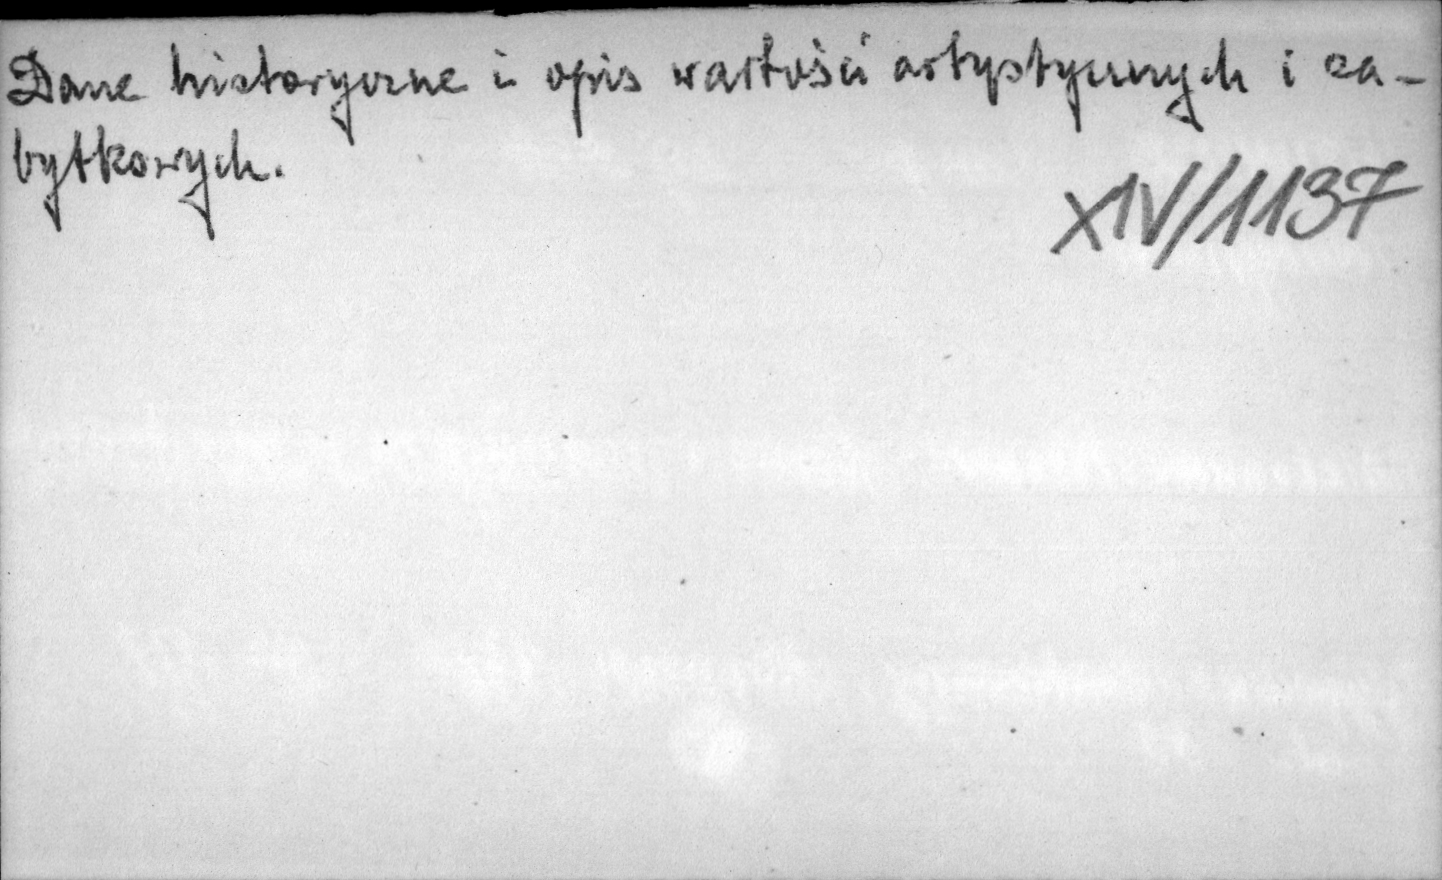 Dane historyczne i opis wartości artystycznych i za-
bytkowych.
XIV/1137